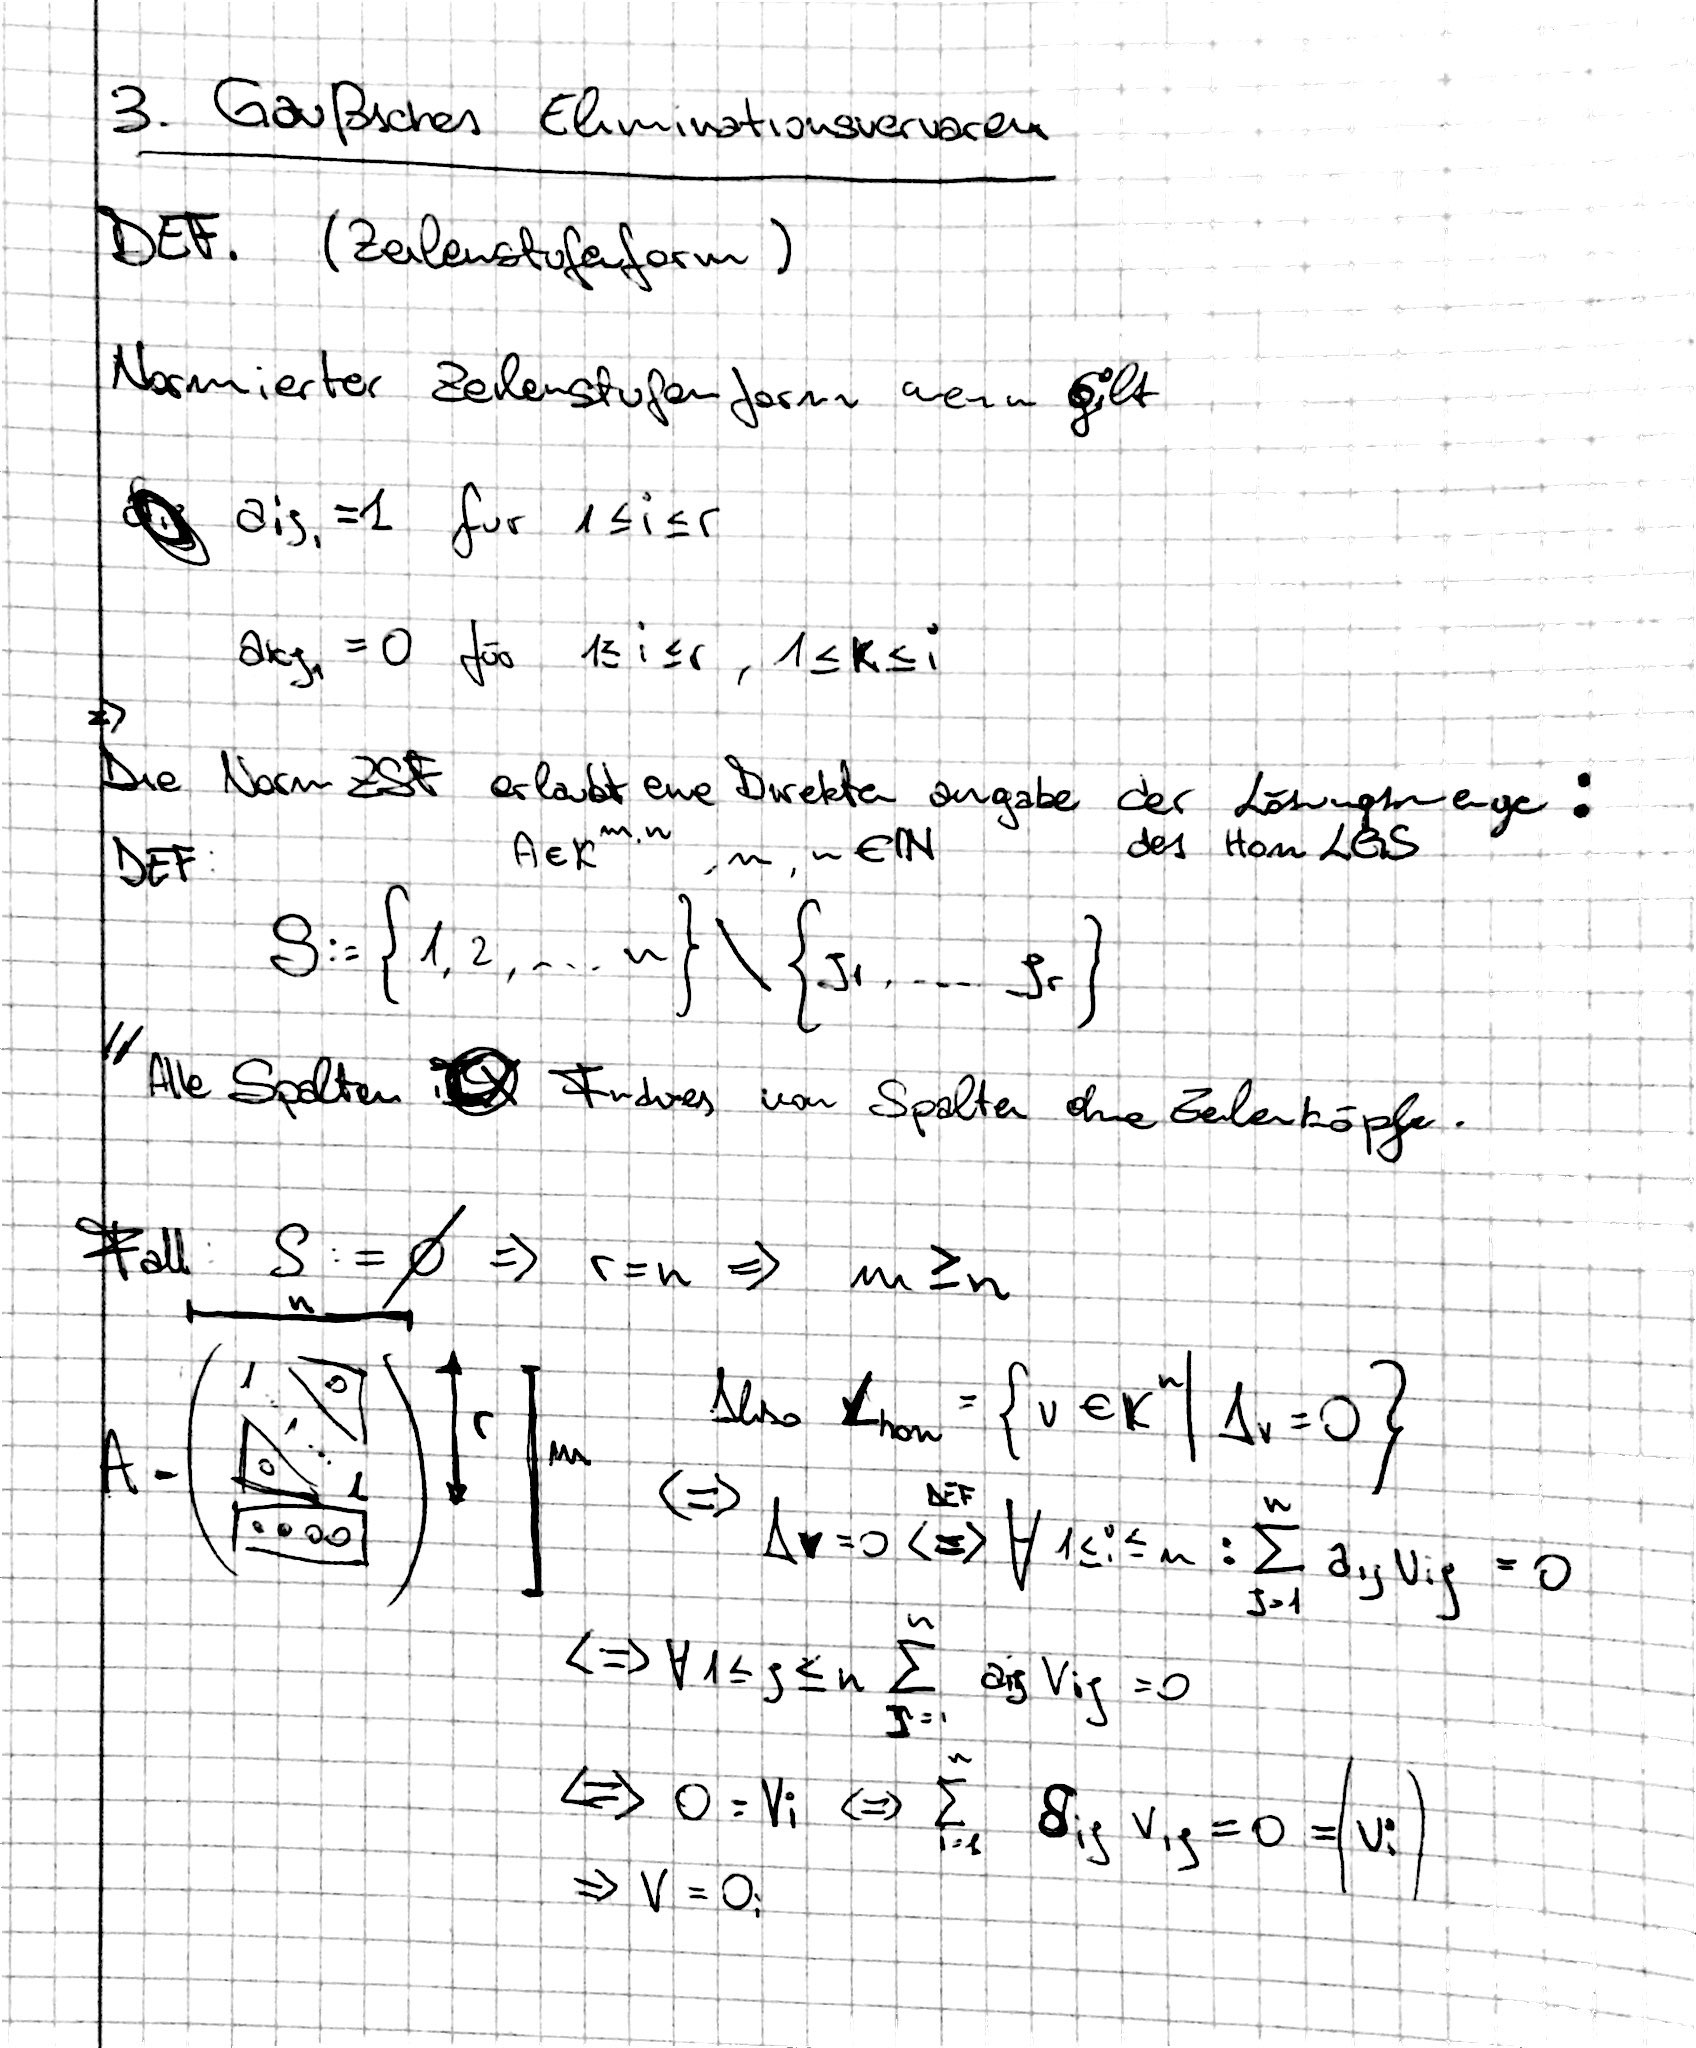 3. Gaußsches Eliminationsvervaren
DEF. (Zeilenstufenform)
Normierter Zeilenstufenform wenn gilt
aij₁ = 1 fur 1 ≤ i ≤ r
akj₁ = 0 für 1 ≤ i ≤ r , 1 ≤ k ≤ i
=>
Die Norm ZSF erlaubt eine Direkte angabe der Lösungsmenge :
DEF: A ∈ K^m,n , m, n ∈ ℕ des Hom LGS
S := {1, 2, .... n} \ {j₁, .... jr}
// Alle Spalten Indizes von Spalten ohne Zeilenköpfe.
Fall: S := ∅ => r = n => m ≥ n
n
A = ( 1 0 0 1 0 0 ) r m Also Lhom = {v ∈ Kⁿ | Av = 0}
<=> Av = 0 <=> DEF ∀ 1 ≤ i ≤ m : Σ j=1 n aij vij = 0
<=> ∀ 1 ≤ j ≤ n Σ j=1 n aij vij = 0
<=> 0 = vi <=> Σ i=1 n δij vij = 0 = (vi)
=> V = 0;